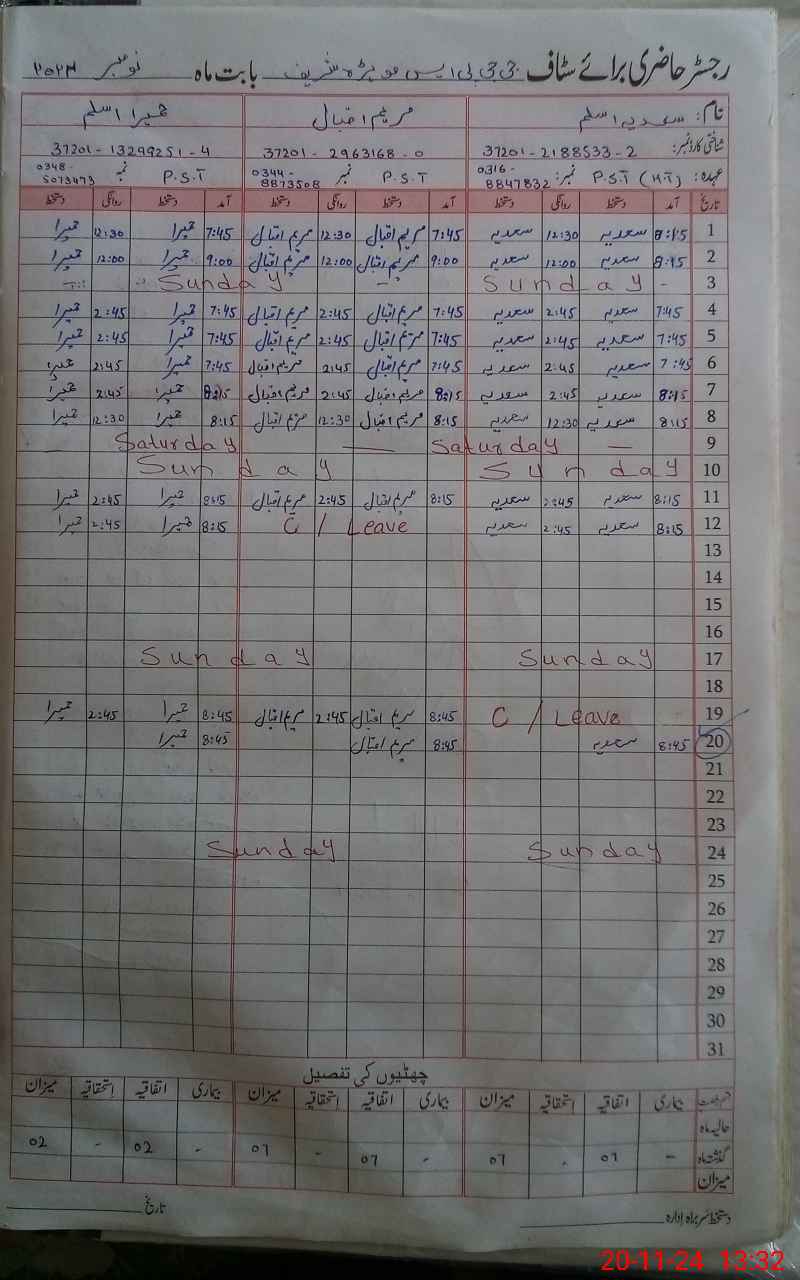 رجسٹر حاضری برائے سٹاف جی جی پی ایس موہڑہ شریف بابت ماہ نومبر ۲۰۲۴
نام: سعدیہ اسلم مریم اقبال حمیرا اسلم
شناختی کارڈ نمبر: 37201-2188533-2 37201-2963168-0 37201-13299251-4
عہدہ: P.S.T (H.T) نمبر: 0316-8847832 P.S.T نمبر 0344-8873508 P.S.T نمبر 0348-5073473
تاریخ آمد دستخط روانگی دستخط آمد دستخط روانگی دستخط آمد دستخط روانگی دستخط
1 8:15 سعدیہ 12:30 سعدیہ 7:45 مریم اقبال 12:30 مریم اقبال 7:45 حمیرا 12:30 حمیرا
2 8:15 سعدیہ 12:00 سعدیہ 9:00 مریم اقبال 12:00 مریم اقبال 9:00 حمیرا 12:00 حمیرا
3 - Sunday - Sunday
4 7:45 سعدیہ 2:45 سعدیہ 7:45 مریم اقبال 2:45 مریم اقبال 7:45 حمیرا 2:45 حمیرا
5 7:45 سعدیہ 2:45 سعدیہ 7:45 مریم اقبال 2:45 مریم اقبال 7:45 حمیرا 2:45 حمیرا
6 7:45 سعدیہ 2:45 سعدیہ 7:45 مریم اقبال 2:45 مریم اقبال 7:45 حمیرا 2:45 حمیرا
7 8:15 سعدیہ 2:45 سعدیہ 8:15 مریم اقبال 2:45 مریم اقبال 8:15 حمیرا 2:45 حمیرا
8 8:15 سعدیہ 12:30 سعدیہ 8:15 مریم اقبال 12:30 مریم اقبال 8:15 حمیرا 12:30 حمیرا
9 — Saturday — Saturday
10 Sunday Sunday
11 8:15 سعدیہ 2:45 سعدیہ 8:15 مریم اقبال 2:45 مریم اقبال 8:15 حمیرا 2:45 حمیرا
12 8:15 سعدیہ 2:45 سعدیہ C / Leave 8:15 حمیرا 2:45 حمیرا
13
14
15
16
17 Sunday Sunday
18
19 C / Leave 8:45 مریم اقبال 2:45 مریم اقبال 8:45 حمیرا 2:45 حمیرا
20 8:45 سعدیہ 8:45 مریم اقبال 8:45 حمیرا
21
22
23
24 Sunday Sunday
25
26
27
28
29
30
31
چھٹیوں کی تفصیل
قسم رخصت بیماری اتفاقیہ استحقاقیہ میزان بیماری اتفاقیہ استحقاقیہ میزان بیماری اتفاقیہ استحقاقیہ میزان
حالیہ ماہ
گذشتہ ماہ - 01 - 01 - 01 - 01 - 02 - 02
میزان
دستخط سربراہ ادارہ تاریخ
20-11-24 13:32